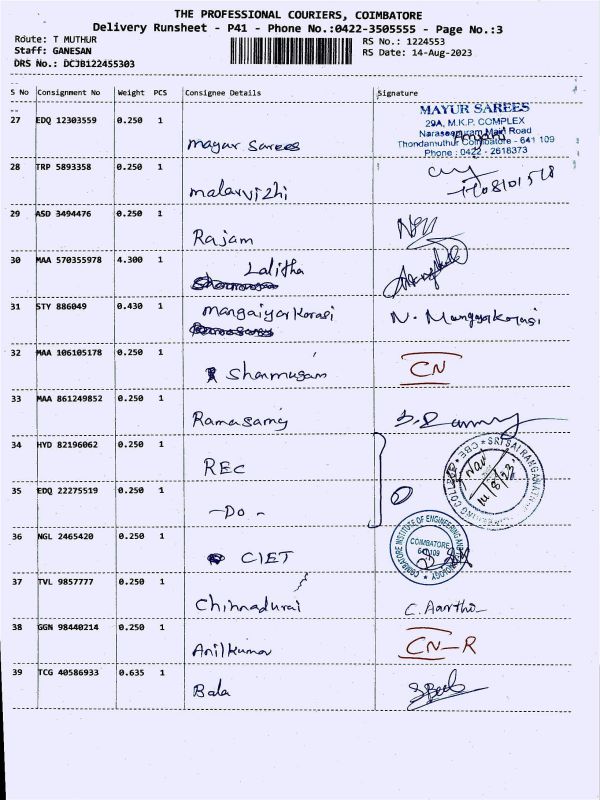 THE PROFESSIONAL COURIERS, COIMBATORE
Delivery Runsheet - P41 - Phone No.:0422-3505555 - Page No.:3
Route: T MUTHUR RS No.: 1224553
Staff: GANESAN RS Date: 14-Aug-2023
DRS No.: DCJB122455303
S No Consignment No Weight PCS Consignee Details Signature
27 EDQ 12303559 0.250 1 Mayur Sarees
MAYUR SAREES
29A, M.K.P. COMPLEX
Naraseepuram Main Road
Thondamuthur Coimbatore - 641 109
Phone : 0422 - 2618373
28 TRP 5893358 0.250 1 Malarvizhi
29 ASD 3494476 0.250 1 Rajam
30 MAA 570355978 4.300 1 Lalitha
31 STY 886049 0.430 1 Mangaiyarkarasi N. Mangayarkarasi
32 MAA 106105178 0.250 1 Shanmugam CN
33 MAA 861249852 0.250 1 Ramasamy
34 HYD 82196062 0.250 1 REC
SRI SAI RANGANATHAN ENGINEERING COLLEGE CBE
35 EDQ 22275519 0.250 1 -Do-
36 NGL 2465420 0.250 1 CIET
COIMBATORE INSTITUTE OF ENGINEERING AND TECHNOLOGY
COIMBATORE
641 109
37 TVL 9857777 0.250 1 Chinnadurai C. Aartho
38 GGN 98440214 0.250 1 Anilkumar CN-R
39 TCG 40586933 0.635 1 Bala